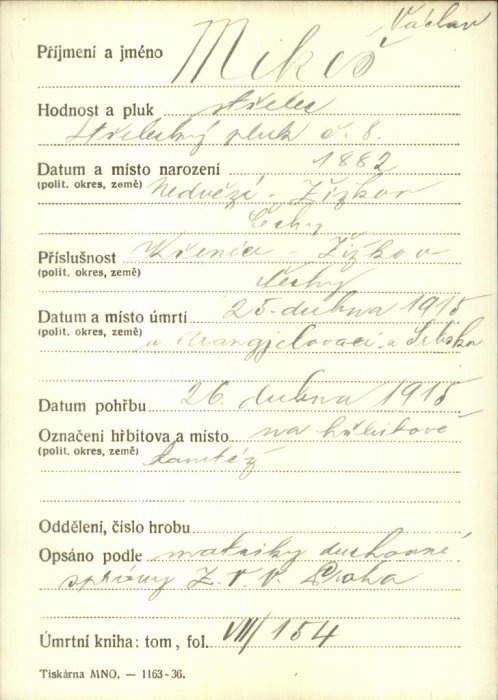 Václav
Příjmení a jméno Mikeš
Hodnost a pluk střelec
střelecký pluk č. 8.
Datum a místo narození 1882
(polit. okres, země) Nedvězí - Žižkov
Čechy
Příslušnost Křenice - Žižkov
(polit. okres, země) Čechy
Datum a místo úmrtí 25. dubna 1915
(polit. okres, země) v Arangjelovaci v Srbsku
Datum pohřbu 26. dubna 1915
Označení hřbitova a místo na hřbitově
(polit. okres, země) tamtéž
Oddělení, číslo hrobu
Opsáno podle matriky duchovní
správy Z. V. V. Praha
Úmrtní kniha: tom, fol. VIII/154
Tiskárna MNO. — 1163-36.